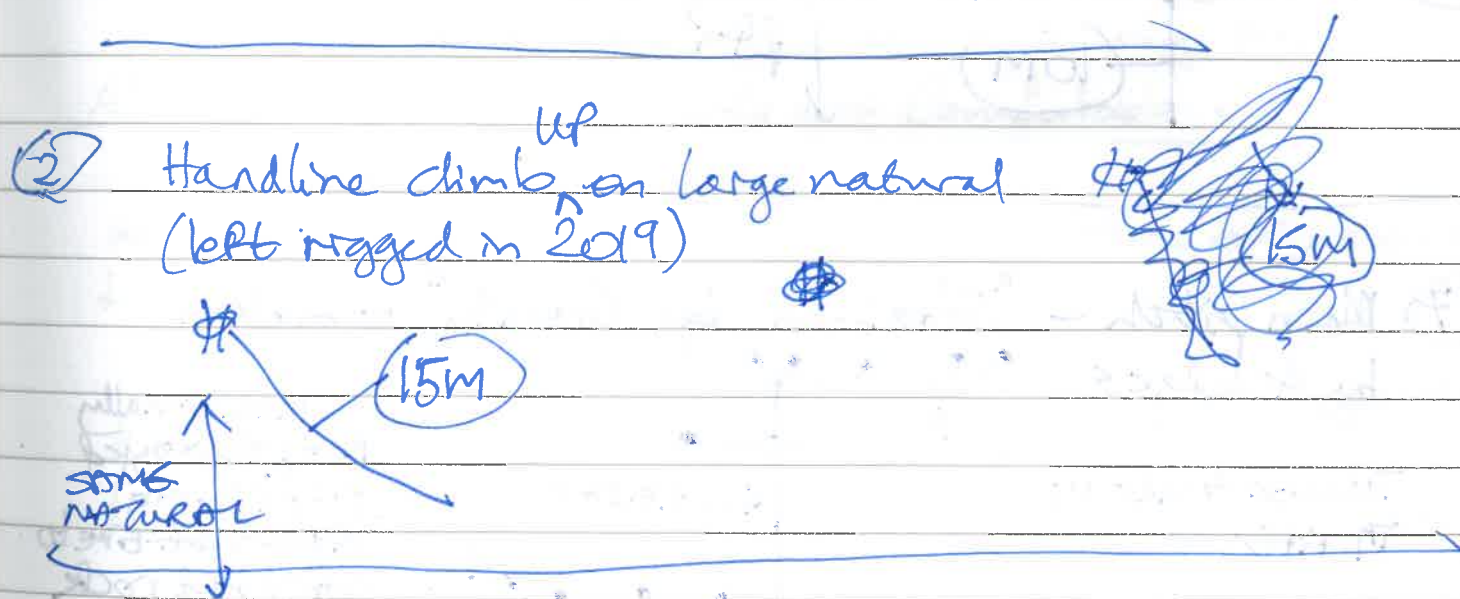 ② Handline climb UP on large natural
(left rigged in 2019)
15m
15m
SAME
NATURAL